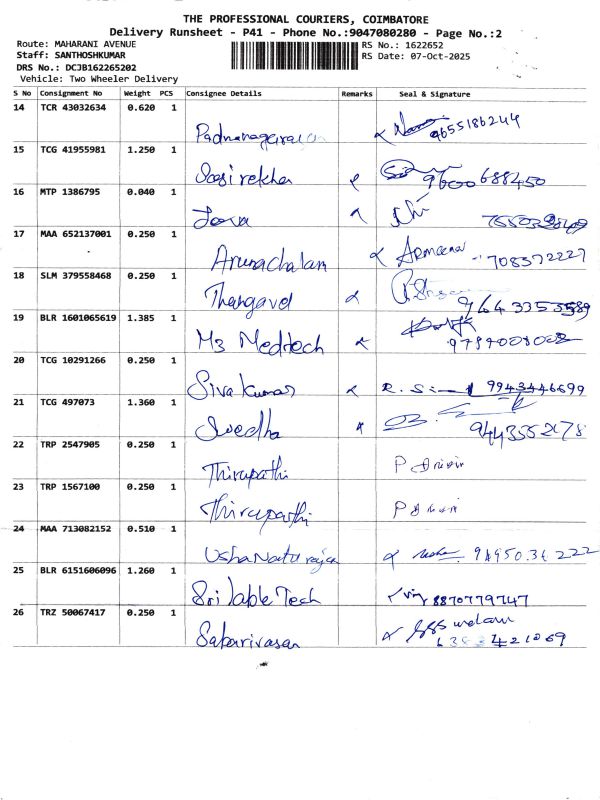 THE PROFESSIONAL COURIERS, COIMBATORE
Delivery Runsheet - P41 - Phone No.:9047080280 - Page No.:2
Route: MAHARANI AVENUE
Staff: SANTHOSHKUMAR
DRS No.: DCJB162265202
Vehicle: Two Wheeler Delivery
RS No.: 1622652
RS Date: 07-Oct-2025
S No Consignment No Weight PCS Consignee Details Remarks Seal & Signature
14 TCR 43032634 0.620 1
9655186244
15 TCG 41955981 1.250 1
Sasirekha 9600688450
16 MTP 1386795 0.040 1
17 MAA 652137001 0.250 1
Arunachalam 708372227
18 SLM 379558468 0.250 1
Thangavel
19 BLR 1601065619 1.385 1
M3 Medtech
20 TCG 10291266 0.250 1
Sivakumar 9943446699
21 TCG 497073 1.360 1
Swedha
22 TRP 2547905 0.250 1
Thirupathi
23 TRP 1567100 0.250 1
Thirupathi
24 MAA 713082152 0.510 1
Usha Natarajan
25 BLR 6151606096 1.260 1
Sri Table Tech 8870779747
26 TRZ 50067417 0.250 1
Sabarivasan